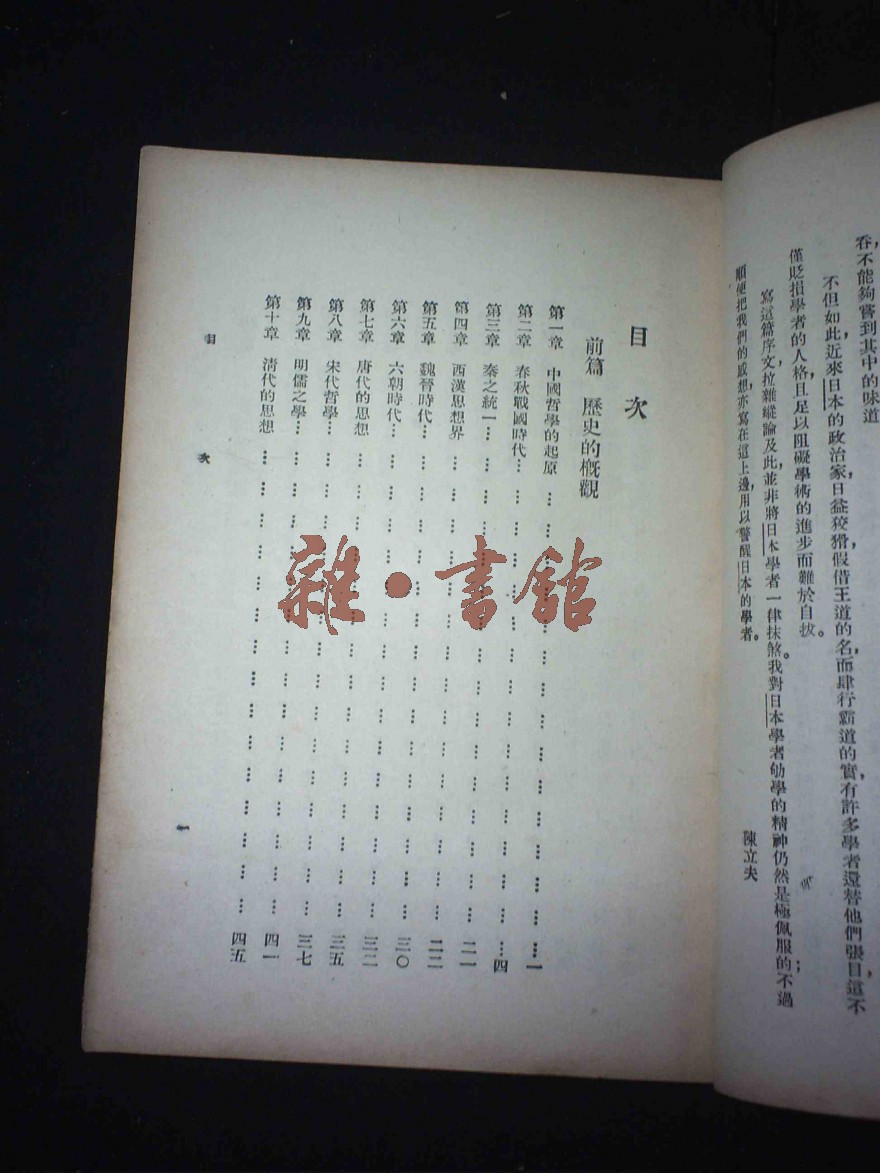 吞,不能夠嘗到其中的味道
不但如此,近來日本的政治家,日益狡猾,假借王道的名,而肆行霸道的實,有許多學者還替他們張目,這不
僅貶損學者的人格,且足以阻礙學術的進步而難於自拔。
寫這篇序文,拉雜縱論及此,並非將日本學者一律抹煞。我對日本學者劬學的精神仍然是極佩服的;不過
順便把我們的感想,亦寫在這上邊,用以警醒日本的學者。
陳立夫
目次
前篇 歷史的概觀
第一章 中國哲學的起原……一
第二章 春秋戰國時代……四
第三章 秦之統一……二一
第四章 西漢思想界……二二
第五章 魏晉時代……三〇
第六章 六朝時代……三二
第七章 唐代的思想……三五
第八章 宋代哲學……三七
第九章 明儒之學……四一
第十章 清代的思想……四五
目次 一
雜·書館